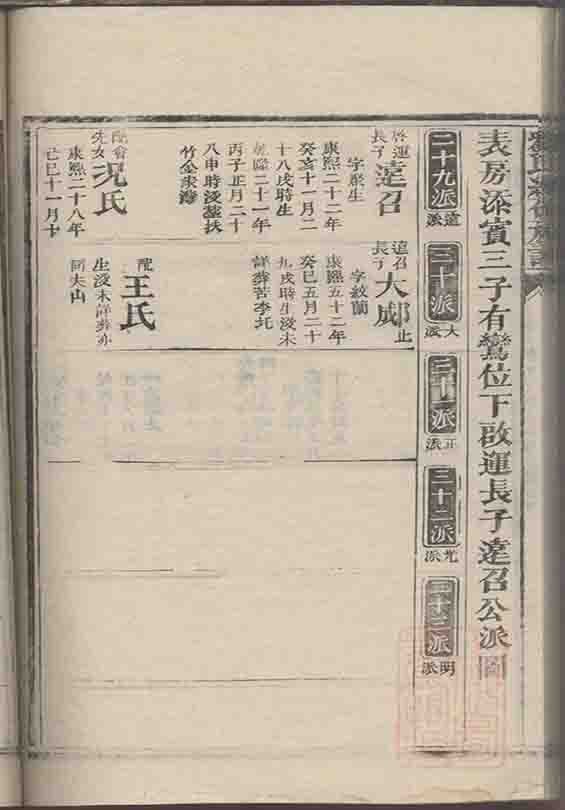 表房添賓三子有鸞位下啟運長子達召公派圖
二十九派
達派
三十派
大派
三十一派
正派
三十二派
光派
三十三派
明派
啓運
長子
達召
字聚生
康熙二十二年
癸亥十一月二
十八戌時生
乾隆二十一年
丙子正月二十
八申時沒塟扶
竹金家灣
配會
先女
况氏
康熙二十八年
己巳十一月十
達召
長子
大邺止
字紋蘭
康熙五十二年
癸巳五月二十
九戌時生沒未
詳葬苦李圫
配
王氏
生沒未詳葬亦
同夫山